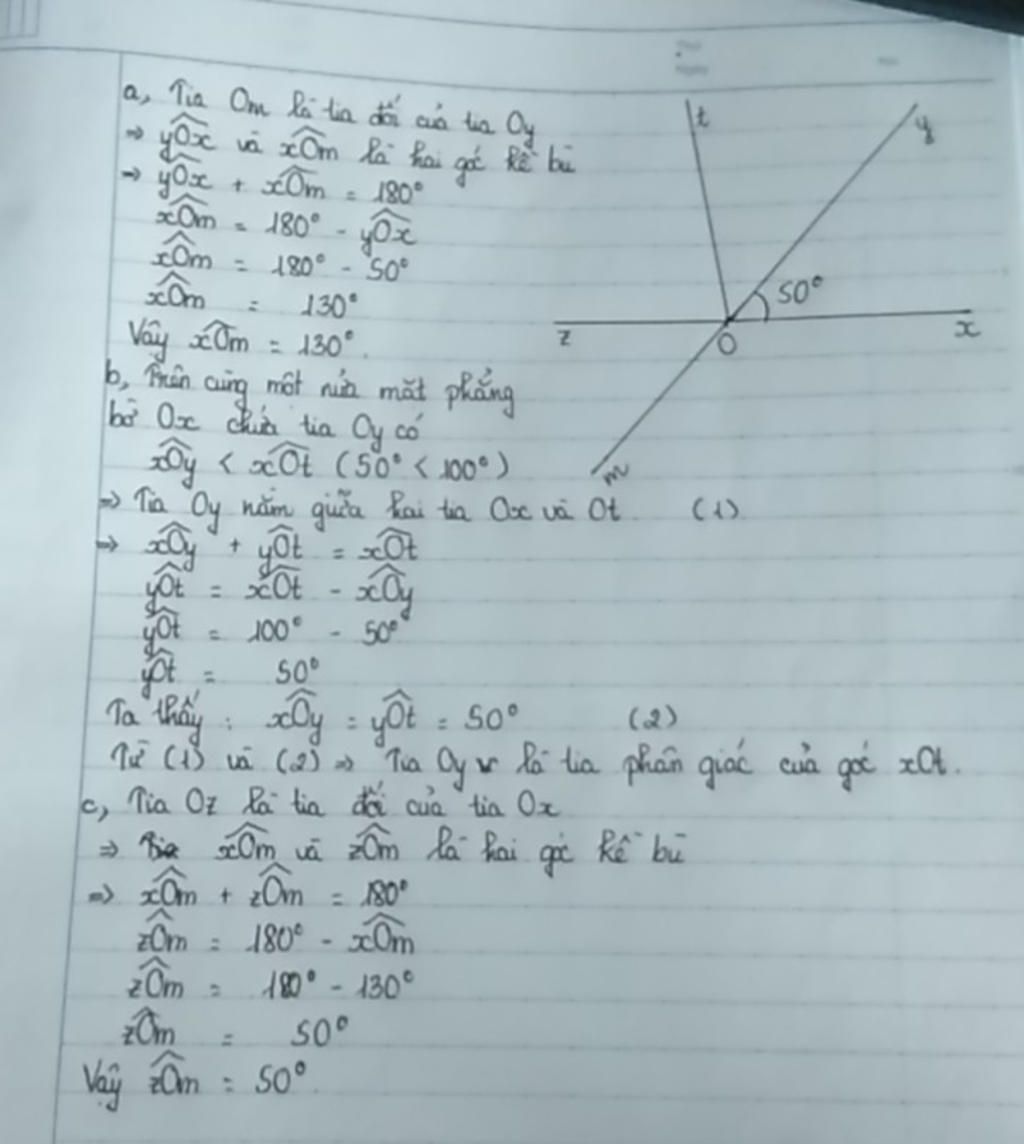 a, Tia Om là tia đối của tia Oy
⇒ yOx̂ và xOm̂ là hai góc kề bù
⇒ yOx̂ + xOm̂ = 180°
xOm̂ = 180° - yOx̂
xOm̂ = 180° - 50°
xOm̂ = 130°
Vậy xOm̂ = 130°.
b, Trên cùng một nửa mặt phẳng
bờ Ox chứa tia Oy có
xOŷ < xOt̂ (50° < 100°)
⇒ Tia Oy nằm giữa hai tia Ox và Ot (1)
⇒ xOŷ + yOt̂ = xOt̂
yOt̂ = xOt̂ - xOŷ
yOt̂ = 100° - 50°
yOt̂ = 50°
Ta thấy: xOŷ = yOt̂ = 50° (2)
Từ (1) và (2) ⇒ Tia Oy là tia phân giác của góc xOt.
c, Tia Oz là tia đối của tia Ox
⇒ xOm̂ và zOm̂ là hai góc kề bù
⇒ xOm̂ + zOm̂ = 180°
zOm̂ = 180° - xOm̂
zOm̂ = 180° - 130°
zOm̂ = 50°
Vậy zOm̂ = 50°.
t
y
50°
z
O
x
m